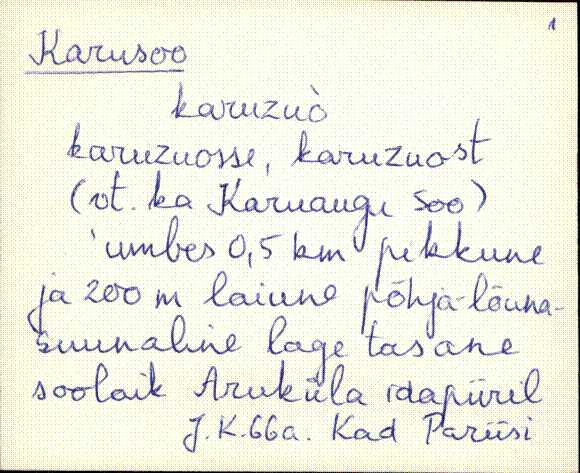 1
Karusoo
karuzuò
karuzuosse, karuzuost
(vt. ka Karuaugu soo)
'umbes 0,5 km pikkune
ja 200 m laiune põhja-lõuna-
suunaline lage tasane
soolaik Aruküla idapiiril
J.K.66a. Kad Pariisi